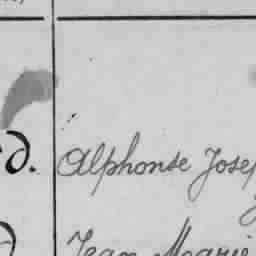 d. Alphonse Josep
Jean Marie